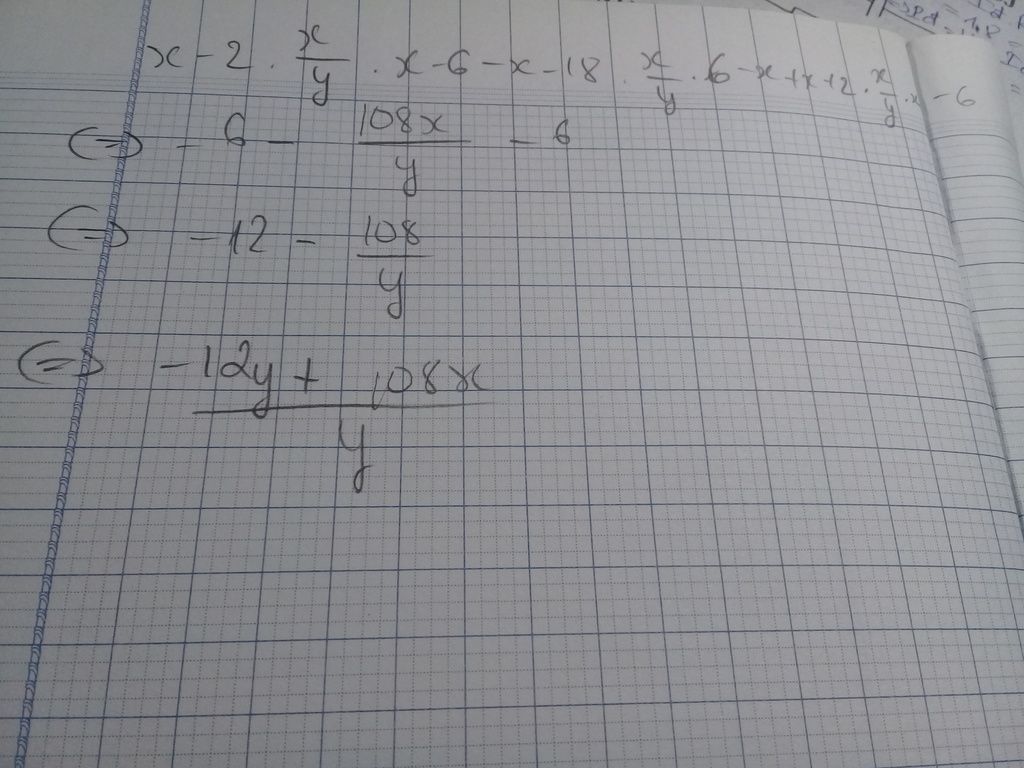 x - 2 . x/y . x - 6 - x - 18 . x/y . 6 - x + x + 2 . x/y . x - 6
(=) - 6 - 108x/y - 6
(=) -12 - 108/y
(=) -12y + 108x / y